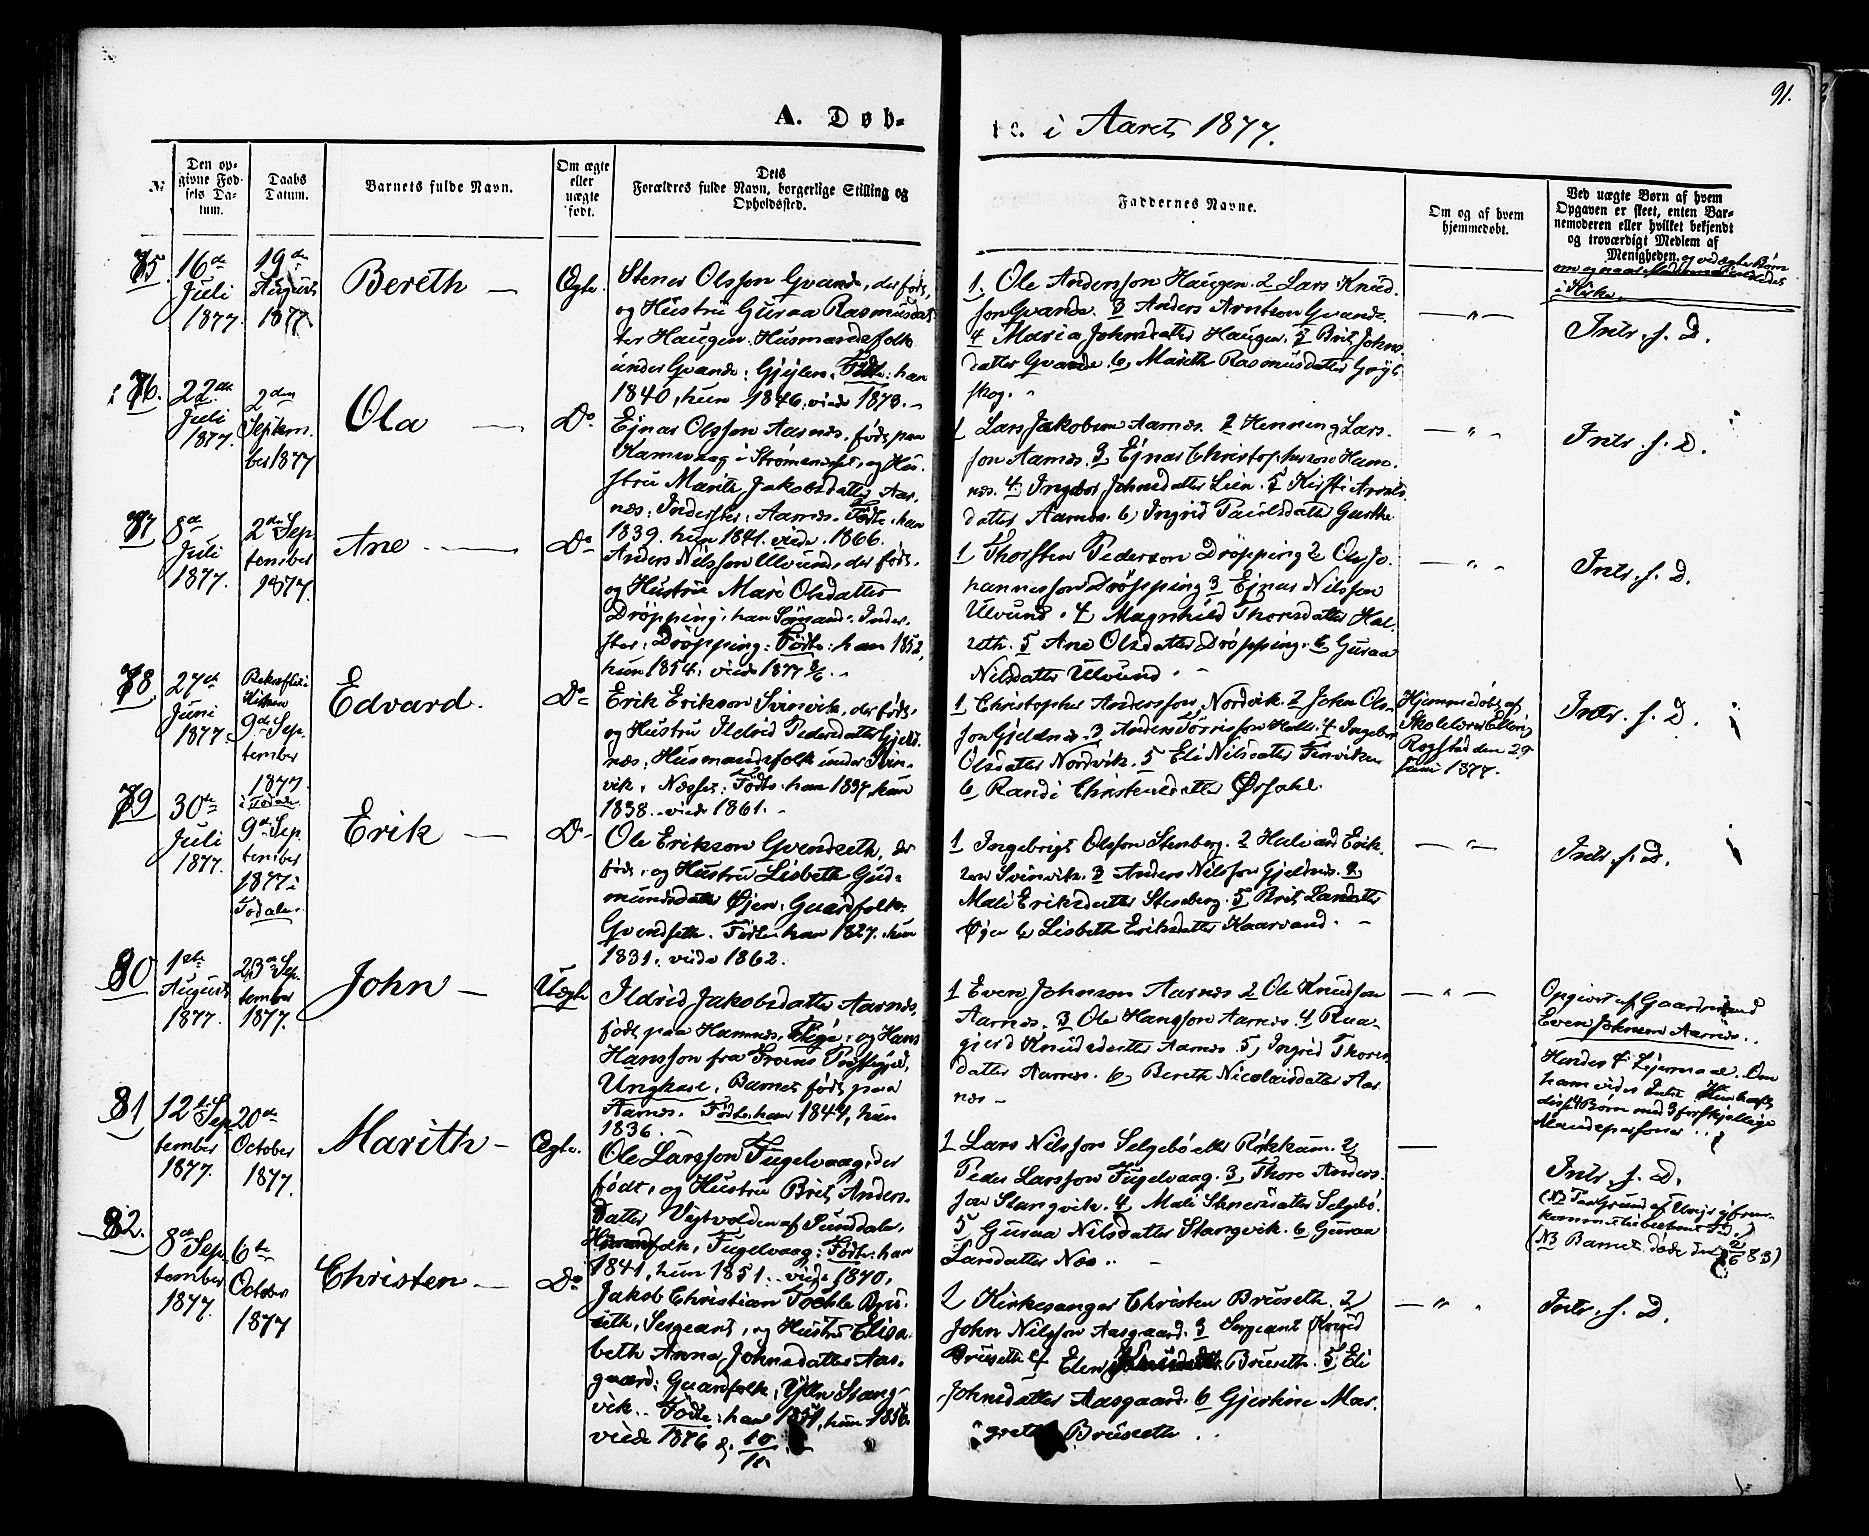 91.
A. Døb-
te. i Aaret 1877.
No
Den op-
givne Fød-
sels Da-
tum.
Daabs
Datum.
Barnets fulde Navn.
Om ægte
eller
uægte
født.
Dets
Forældres fulde Navn, borgerlige Stilling og
Opholdssted.
Faddernes Navne.
Om og af hvem
hjemmedøbt.
Ved uægte Børn af hvem
Opgaven er skeet, enten Bar-
nemoderen eller hvilket bekjendt
og troværdigt Medlem af
Menigheden.
75.
16de
Juli
1877.
19de
August
1877
Bereth —
Ægte.
Stener Olsson Qvande, der født,
og Hustru Guraa Rasmusdat-
ter Haugen. Husmandsfolk
under Qvande: Gjejlen. Fødte: han
1840, hun 1846, viede 1873. –
1. Ole Andersson Haugen. 2 Lars Knud-
son Qvande. 3 Anders Arntson Qvande.
4 Maria Johnsdatter Haugen. 5 Brit Johns-
datter Qvande. 6, Marith Rasmusdatter
skog.
— " —
Intr. f. D.
76.
22de
Juli
1877.
2den
Septem-
ber 1877
Ola —
Do
Ejnar Olsson Aarnes, født paa
i Strømmen, og Hu-
stru Marith Jakobsdatter Aar-
nes: Inderster: Aarnes. Fødte: han
1839. hun 1841. viede 1866.
1 Lars Jakobsen Aarnes. 2 Henning Lars-
son Aarnes. 3, Ejnar Christophersen Ham-
nes. 4. Ingebor Johnsdatter Lien. 5 Kirsti Arnts-
datter Aarnes. 6, Ingrid Paulsdatter
— " –
Intr. f. D.
77
8de
Juli
1877.
2de Sep
tember
1877.
Ane. —
Do
Anders Nilsson Ulvund, der født.
og Hustru Mari Olsdatter
Drøpping: han Sømand: Inder-
ster: Drøpping: Fødte: han 1852,
hun 1854: viede 1877
1 Thorsten Pederson Drøpping 2 Ole Jo-
hannesson Drøpping 3 Ejnar Nilsson
Ulvund. 4 Magnhild Thorsdatter Hal-
seth. 5 Ane Olsdatter Drøpping. 6 Guraa
Nilsdatter Ulvund.
— " –
Intr. f. D.
78.
27de
Juni
1877.
9de Sep-
tember
1877
i Todalen
Edvard.
Do
Erik Erikson Svinvik, der født.
og Hustru Ildrid Pedersdatter Gjeld-
nes: Husmandsfolk under Svin-
vik, Næsset: Fødte: han 1837, hun
1838. viede 1861.
1 Christopher Andersson Nordvik. 2 John Ols-
son Gjeldnes. 3 Anders Torrisson Halle. 4 Ingebor
Olsdatter Nordvik. 5 Eli Nilsdatter Svinviken
6 Randi Christensdatter Ørsahl.
Hjemmedøbt af
Skolelærer
Rogstad den 29
Juni 1877.
Intr. f. D.
79
30te
Juli
1877.
9de Sep-
tember
1877 i
Todalen.
Erik —
Do
Ole Erikson Qvendseth, der
født, og Hustru Lisbeth Gud-
mundsdatter Øjen: Gaardfolk:
Qvendseth. Fødte: han 1827. hun
1831. viede 1862.
1 Ingebrigt Olsson Stenberg. 2 Halvard Erik-
sen Svinvik. 3 Anders Nilsson Gjeldnes. 4
Mali Eriksdatter Stenberg. 5 Brit Larsdatter
Øjen 6 Lisbeth Eriksdatter Kaarvand. –
— " —
Intr. f. D.
80
1ste
August
1877.
23de Sep
tember
1877.
John —
Uægte
Ildrid Jakobsdatter Aarnes,
født paa Hamnes, Pige: og Hans
Hansson fra
Ungkarl, Barnet født paa
Aarnes. Fødte: han 1844, hun
1836. –
1 Even Johnson Aarnes 2 Ole Knudson
Aarnes. 3 Ole Hansson Aarnes. 4 Rag-
gjerd Knudsdatter Aarnes. 5, Ingrid Thores
datter Aarnes. 6, Bereth Nicolaisdatter Aar-
nes –
— " —
Opgivet af Gaardmand
Even Johnson Aarnes.
Hendes 4 Lejermaal. Om
ham vides Intet
disse 4 Børn med 3 forskjellige
Mandspersoner.
81
12te Sep
tember
1877.
20de
October
1877.
Marith —
Ægte.
Ole Larsson Fugelvaag, der
født, og Hustru Brit Anders-
datter Vejtvolden af Sundalen.
Fugelvaag: Fødte: han
1841, hun 1851. viede 1870.
1 Lars Nilsson Selgebø eller 2
Peder Larsson Fugelvaag. 3 Thore Anders-
son Stangvik. 4 Mali Stenersdatter Selgebø.
5 Guraa Nilsdatter Stangvik. 6 Guraa
Larsdatter Nos.
—
Intr. f. D.
(NB Barnet døde den 83)
82.
8de Sep
tember
1877.
6te
October
1877
Christen —
Do
Jakob Christian Tochle Brü-
seth, Sergeant, og Hustru Elisa-
beth Anna Johnsdatter Aas-
gaard: Gaardfolk, Ytre Stang-
vik. Fødte: han 1851, hun 1856.
viede 1876 d. 10/11
1 Kirkesanger Christen Brüseth. 2
John Nilsson Aasgaard. 3 Sergeant Knud
Brüseth 4 Elen Brüseth. 5, Eli
Johnsdatter Aasgaard. 6 Gjertine Mar-
grete Brüseth
— " –
Intr. f. D.